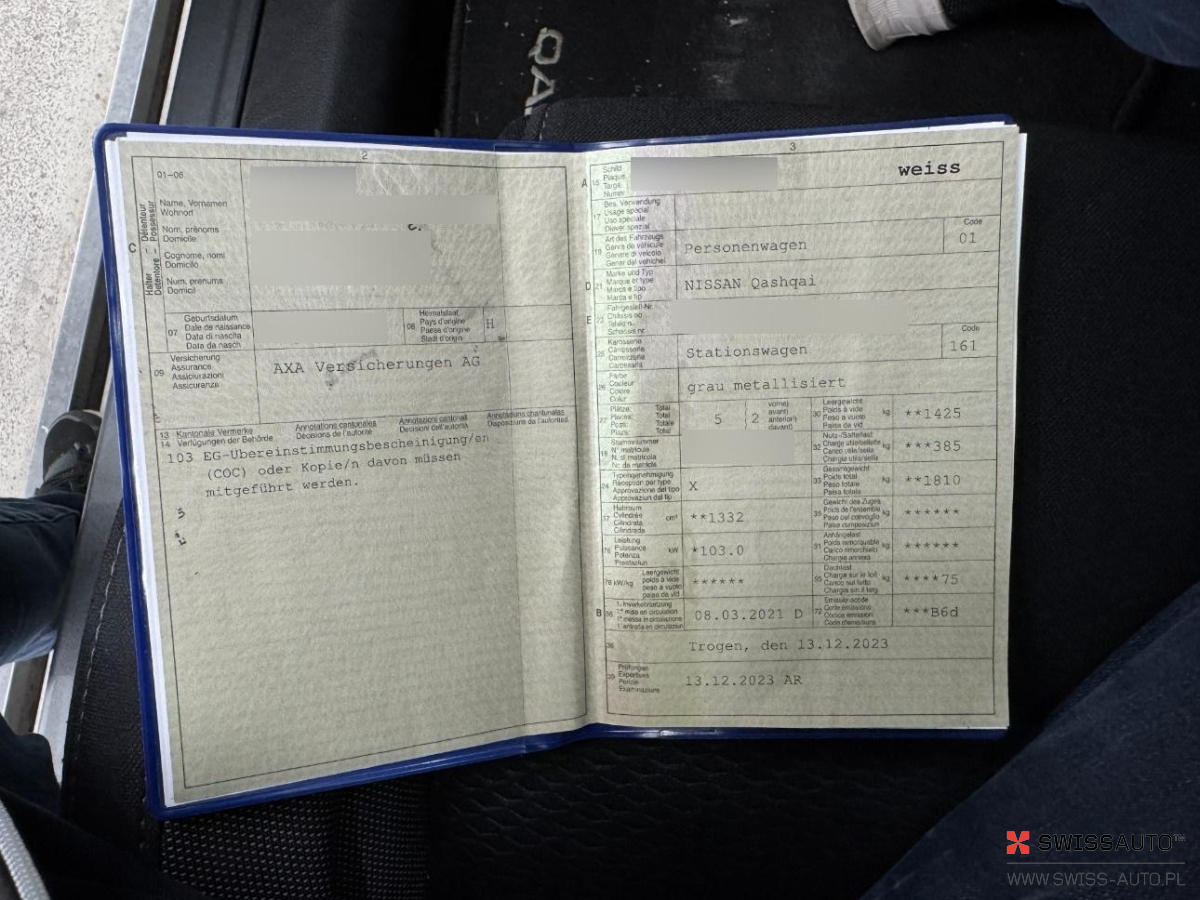 QA
2
01-06
Halter - Détenteur
Detentore - Possessur
C
Name, Vornamen
Wohnort
Nom, prénoms
Domicile
Cognome, nomi
Domicilio
Num, prenums
Domicil
07
Geburtsdatum
Date de naissance
Data di nascita
Data da nasch.
08
Heimatstaat
Pays d'origine
Paese d'origine
Stadi d'origin
H
09
Versicherung
Assurance
Assicurazioni
Assicuranza
AXA Versicherungen AG
13 Kantonale Vermerke
14 Verfügungen der Behörde
Annotations cantonales
Décisions de l'autorité
Annotazioni cantonali
Decisioni dell'autorità
Annotaziuns chantunalas
Disposiziuns da l'autoritad
103 EG-Übereinstimmungsbescheinigung/en
(COC) oder Kopie/n davon müssen
mitgeführt werden.
3
A
15
Schild
Plaque
Targa
Numer
weiss
17
Bes. Verwendung
Usage spécial
Uso speciale
Diever spezial
19
Art des Fahrzeugs
Genre de véhicule
Genere di veicolo
Gener dal vehichel
Personenwagen
Code
01
D
21
Marke und Typ
Marque et type
Marca e tipo
Marca e tip
NISSAN Qashqai
E
23
Fahrgestell-Nr.
Châssis no
Telaio n.
Schassis nr.
25
Karosserie
Carrosserie
Carrozzeria
Carossaria
Stationswagen
Code
161
26
Farbe
Couleur
Colore
Colur
grau metallisiert
27
Plätze: Total
Places: Total
Posti: Totale
Plazs: Total
5
2
vorne)
avant)
anteriori)
davant)
30
Leergewicht
Poids à vide
Peso a vuoto
Paisa da vid
kg
**1425
18
Stammnummer
N° matricule
N. di matricola
Nr. da matricla
32
Nutz-/Sattellast
Charge utile/sellette
Carico utile/sella
Chargia utila/sella
kg
***385
24
Typengenehmigung
Réception par type
Approvazione del tipo
Approvaziun dal tip
X
33
Gesamtgewicht
Poids total
Peso totale
Paisa totala
kg
**1810
37
Hubraum
Cylindrée
Cilindrata
Cilindrada
cm³
**1332
35
Gewicht des Zuges
Poids de l'ensemble
Peso del convoglio
Paisa cumposiziun
kg
******
76
Leistung
Puissance
Potenza
Prestaziun
kW
*103.0
31
Anhängelast
Poids remorquable
Carico rimorchiato
Chargia annexa
kg
******
78 kW/kg
Leergewicht
poids à vide
peso a vuoto
paisa da vid
******
55
Dachlast
Charge sur le toit
Carico sul tetto
Chargia sin il tetg
kg
****75
B
36
1. Inverkehrsetzung
1re mise en circulation
1a messa in circolazione
1. entrada en circulaziun
08.03.2021 D
72
Emissionscode
Code émissions
Codice emissioni
Code d'emissiuns
***B6d
38
Trogen, den 13.12.2023
39
Prüfungen
Expertises
Perizie
Examinaziuns
13.12.2023 AR
SWISSAUTO™
WWW.SWISS-AUTO.PL